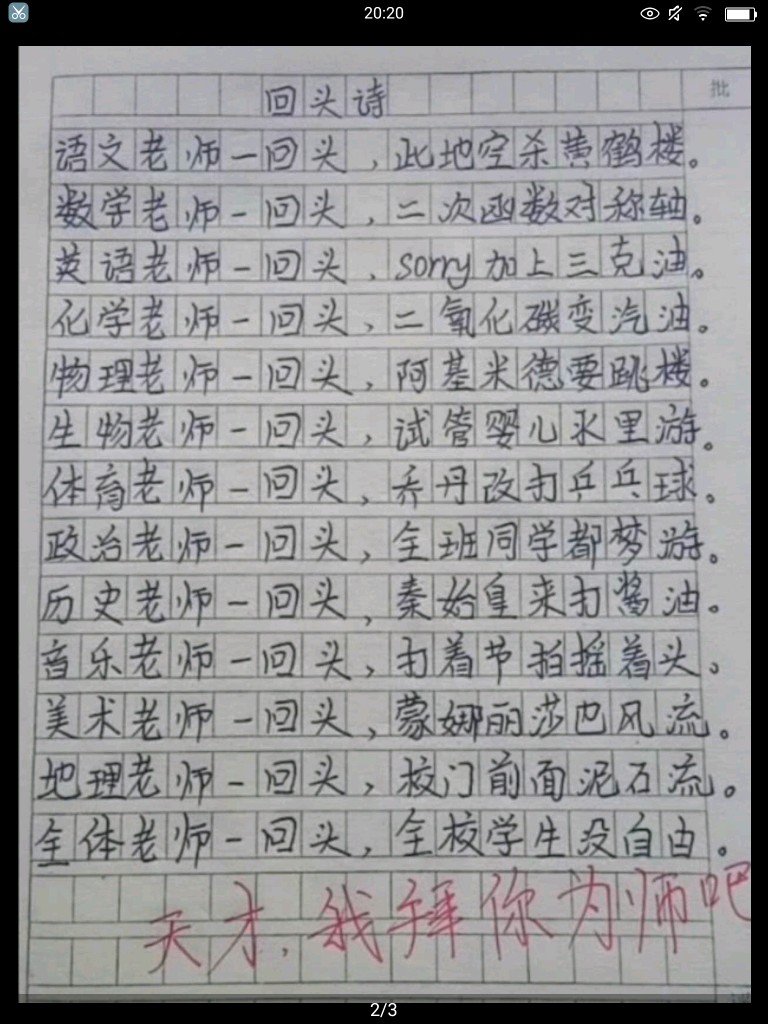 20:20
回头诗
批
语文老师一回头，此地空杀黄鹤楼。
数学老师一回头，二次函数对称轴。
英语老师一回头，sorry加上三克油。
化学老师一回头，二氧化碳变汽油。
物理老师一回头，阿基米德要跳楼。
生物老师一回头，试管婴儿水里游。
体育老师一回头，乔丹改打乒乓球。
政治老师一回头，全班同学都梦游。
历史老师一回头，秦始皇来打酱油。
音乐老师一回头，打着节拍摇着头。
美术老师一回头，蒙娜丽莎也风流。
地理老师一回头，校门前面泥石流。
全体老师一回头，全校学生没自由。
天才，我拜你为师吧
2/3